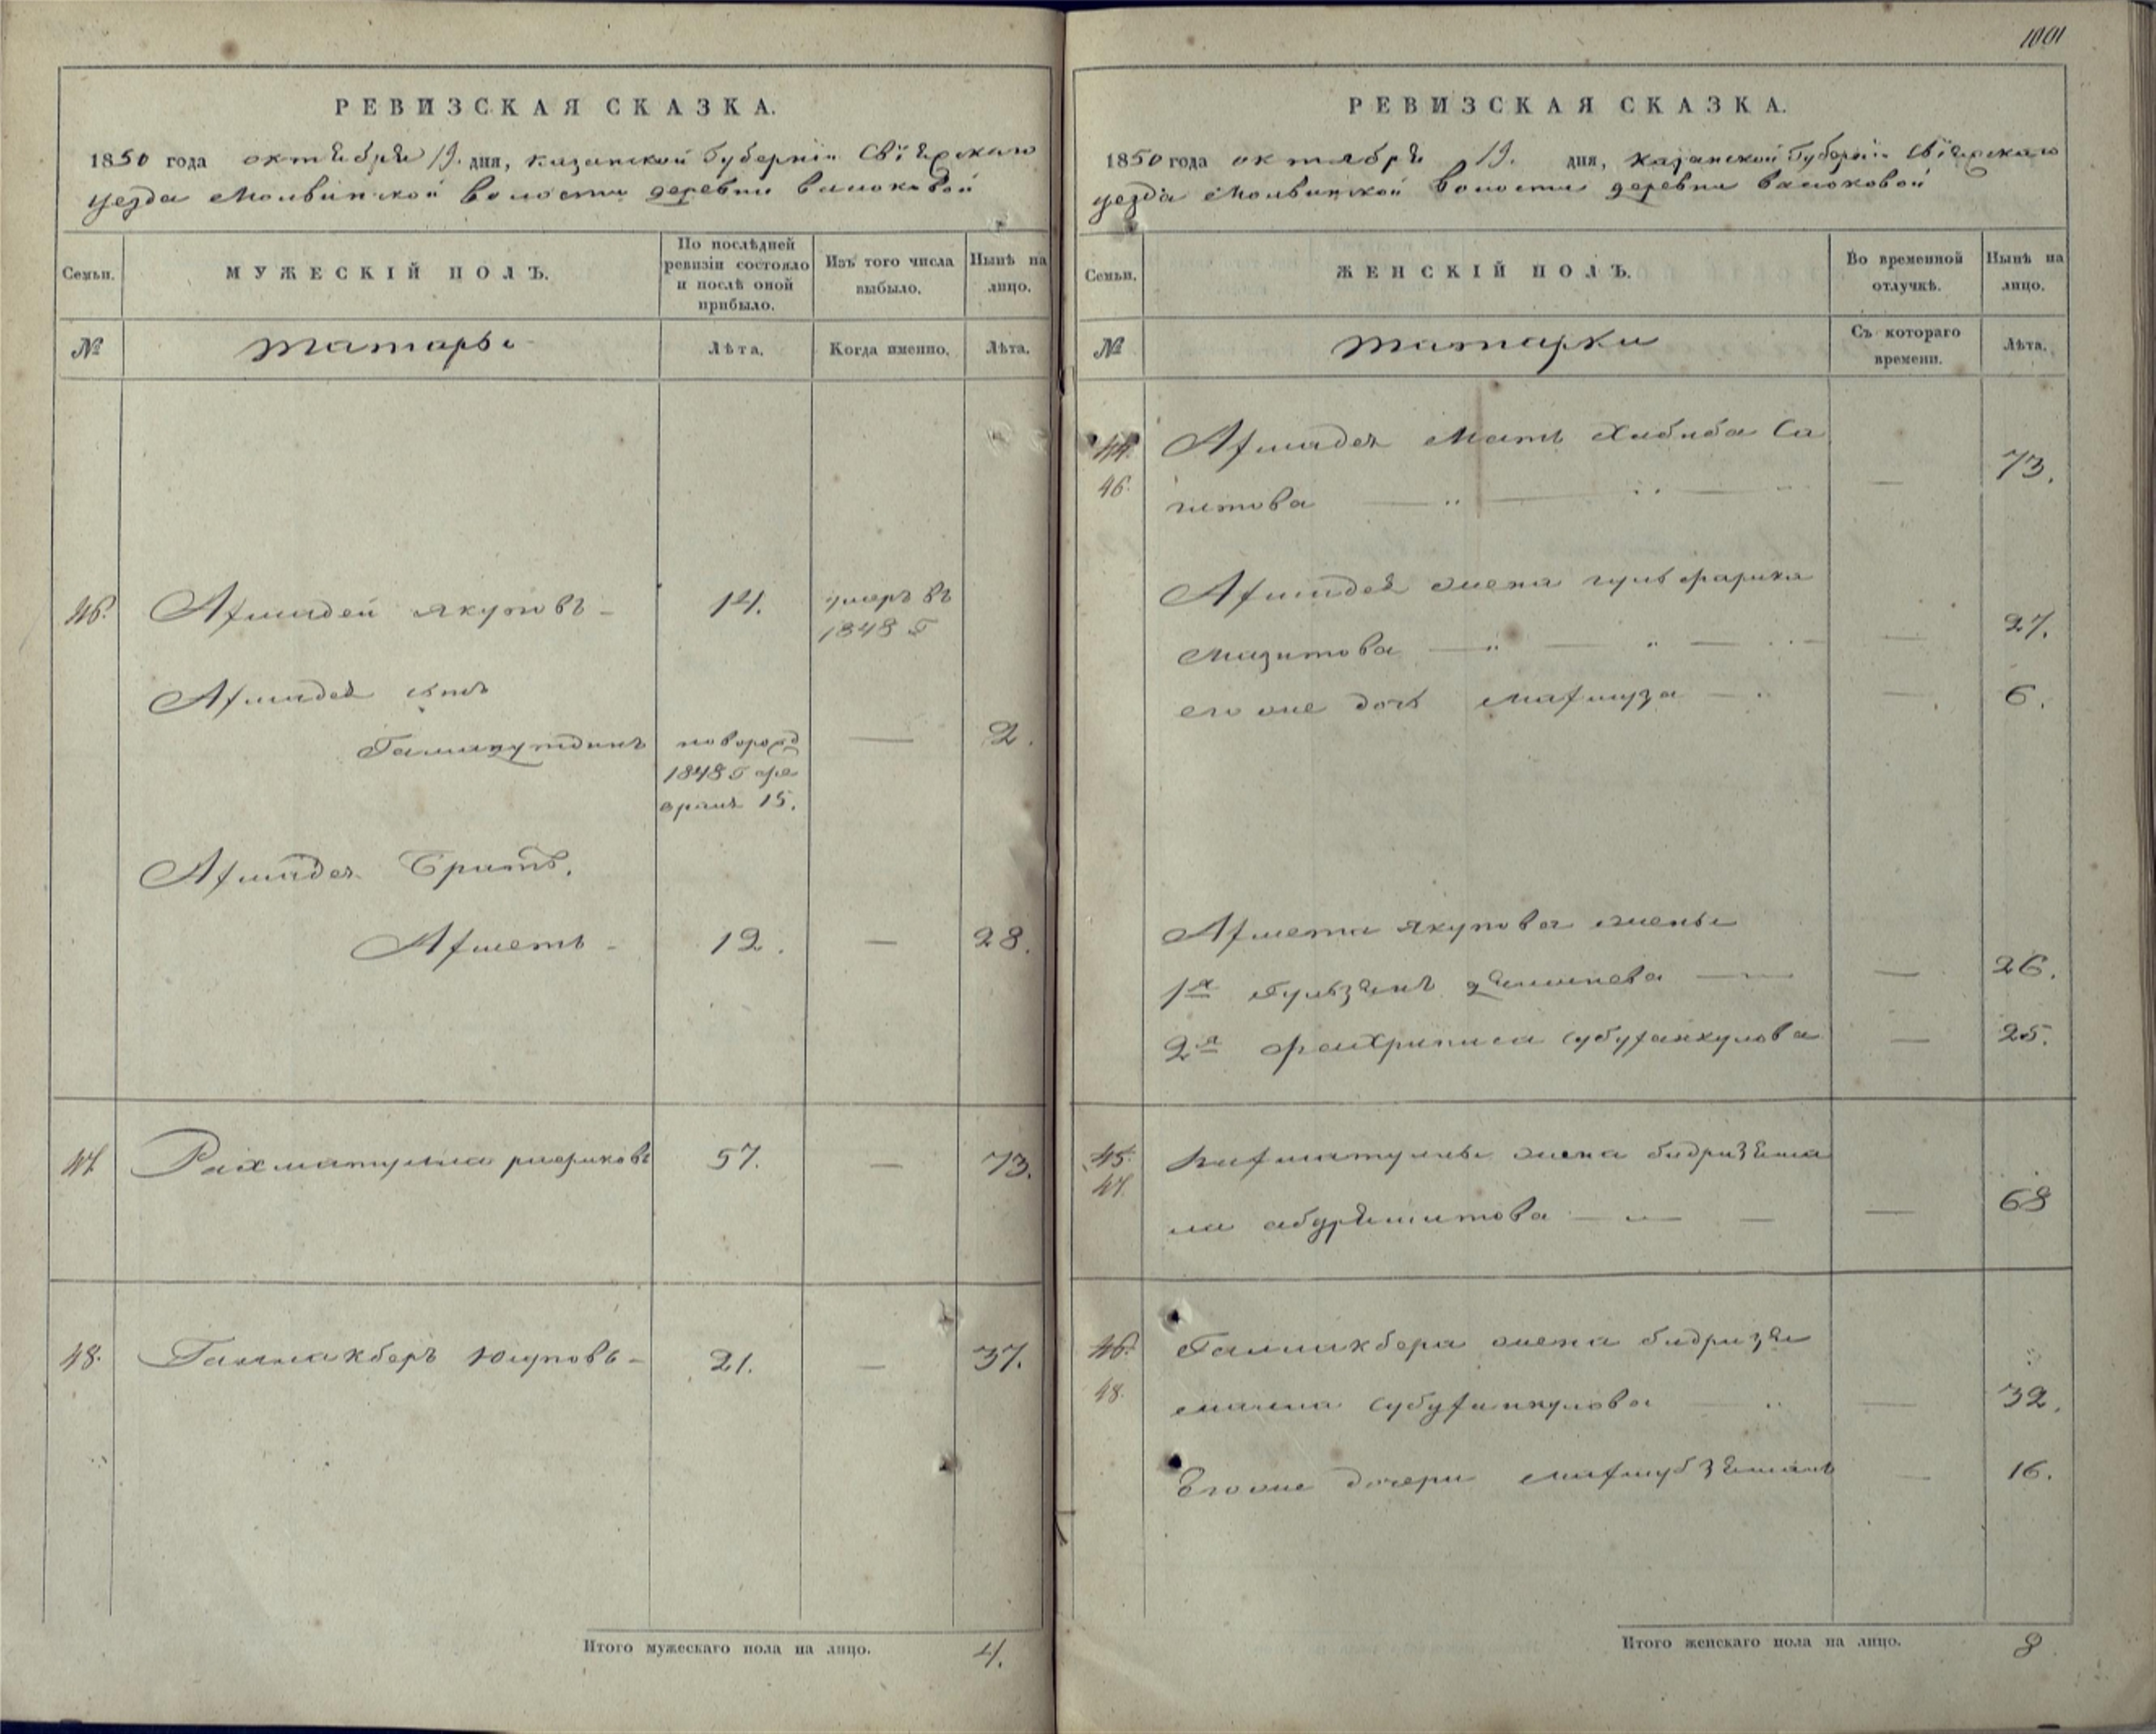 РЕВИЗСКАЯ СКАЗКА.
1850 года октября 19. дня, Казанской Губерніи Свіяжскаго
уезда Молвинской волости деревни Васюковой
Семьи.
МУЖЕСКІЙ ПОЛЪ.
По послѣдней
ревизіи состояло
и послѣ оной
прибыло.
Изъ того числа
выбыло.
Нынѣ на
лицо.
№
татары
Лѣта.
Когда именно.
Лѣта.
46. Ахмадей Якуповъ 14. умеръ въ
1848 г
Ахмадея сынъ
новорожд — 2.
1848 г фе
враля 15.
Ахмадея Братъ,
Ахметъ 12. — 28.
47 Рахматулла 57. — 73.
48. Галиакберъ Юсуповъ 21. — 37.
Итого мужескаго пола на лицо. 4.
1001
РЕВИЗСКАЯ СКАЗКА.
1850 года октября 19. дня, Казанской Губерніи Свіяжскаго
уезда Молвинской волости деревни Васюковой
Семьи.
ЖЕНСКІЙ ПОЛЪ.
Во временной
отлучкѣ.
Нынѣ на
лицо.
№
татарки
Съ котораго
времени.
Лѣта.
44. Ахмадея Мать Хабиба Са
46. гитова — 73.
Ахмадея жена
Мазитова — 27.
его же дочь Махмуза — 6.
Ахмета Якупова жены
1я — 26.
2я Фахриниса — 25.
45. жена Бадризяма
47. ла — 68
46. Галиакбера жена Бадризя
48. — 32.
Его же дочери — 16.
Итого женскаго пола на лицо. 8